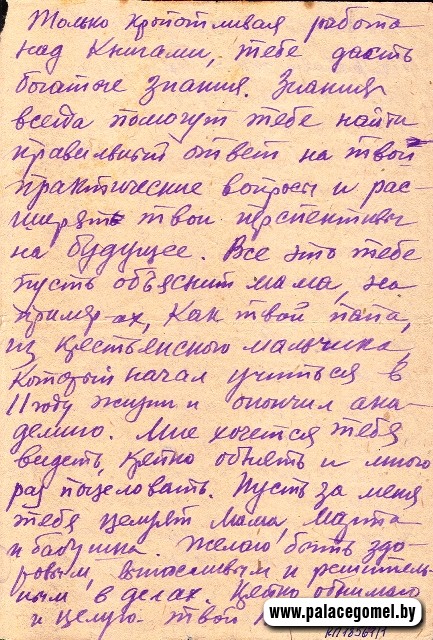 Только кропотливая работа
над Книгами, тебе дасть
богатое знания. Знания
всегда помогут тебе найти
правельный ответ на твои
практические вопросы и рас-
ширят твои перспективы
на будущее. Все это тебе
пусть объяснит мама, на
пример-ах, Как твой папа,
из крестьянского мальчика,
который начал учиться в
11 году жизни и окончил ака-
демию. Мне хочется тебя
видеть, крепко обнять и много
раз поцеловать. Пусть за меня
тебя целуят Мама, Марта
и бабушка. Желаю быть здо-
ровым, счасливым и решитель-
ным в делах. Крепко обнимаю
и целую. твой
www.palacegomel.by